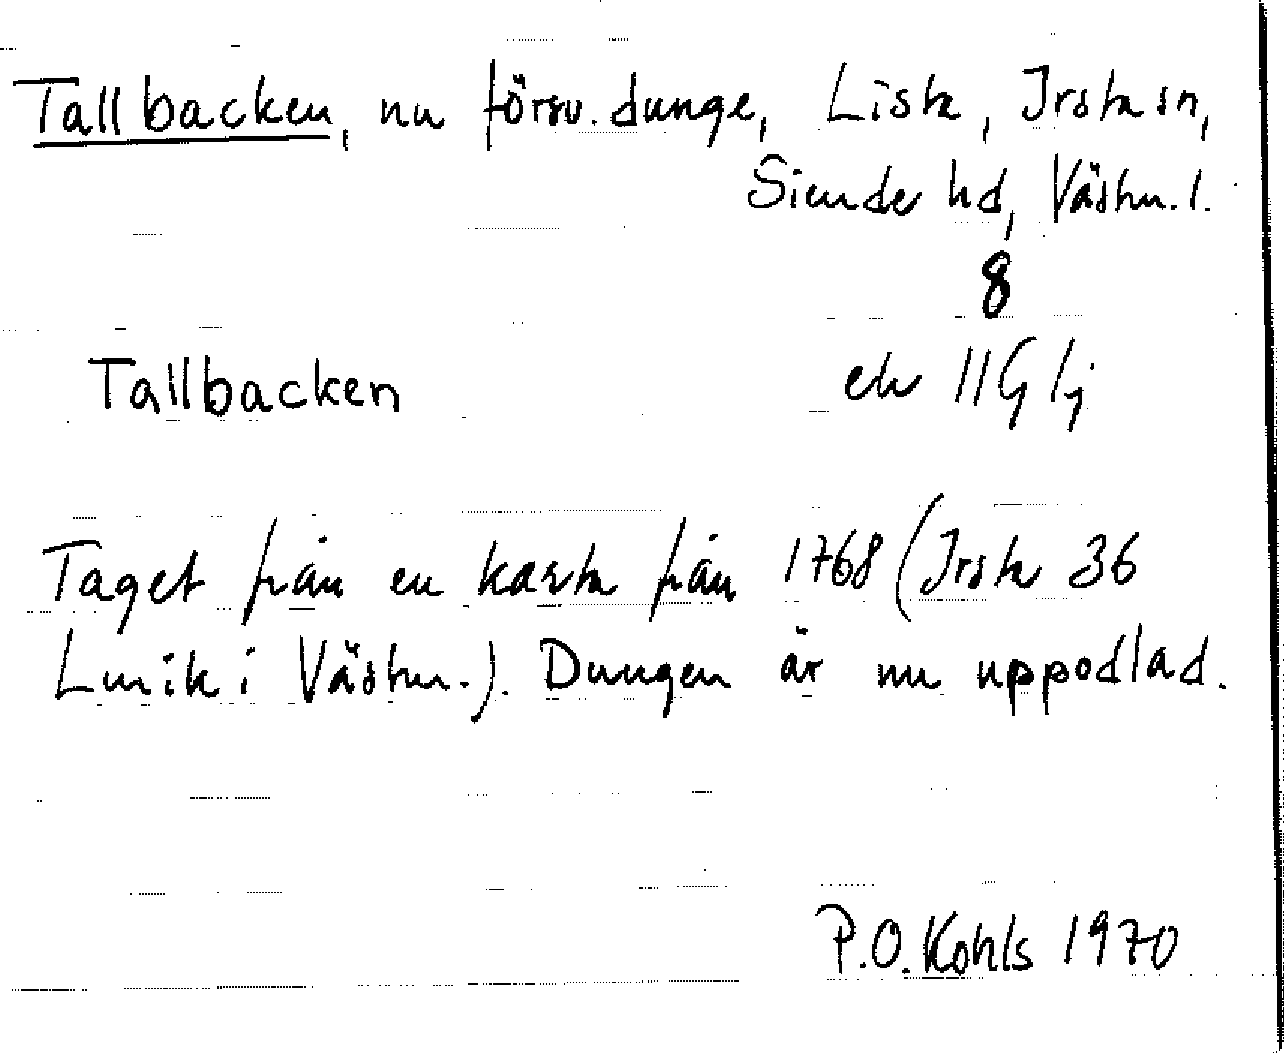 Tallbacken, nu försv. dunge, Lista, Irsta sn,
Siende hd, Västm. l.
8
Tallbacken ek 11G 1j
Taget från en karta från 1768 (Irsta 36
Lmik i Västm.). Dungen är nu uppodlad.
P.O. Kohls 1970